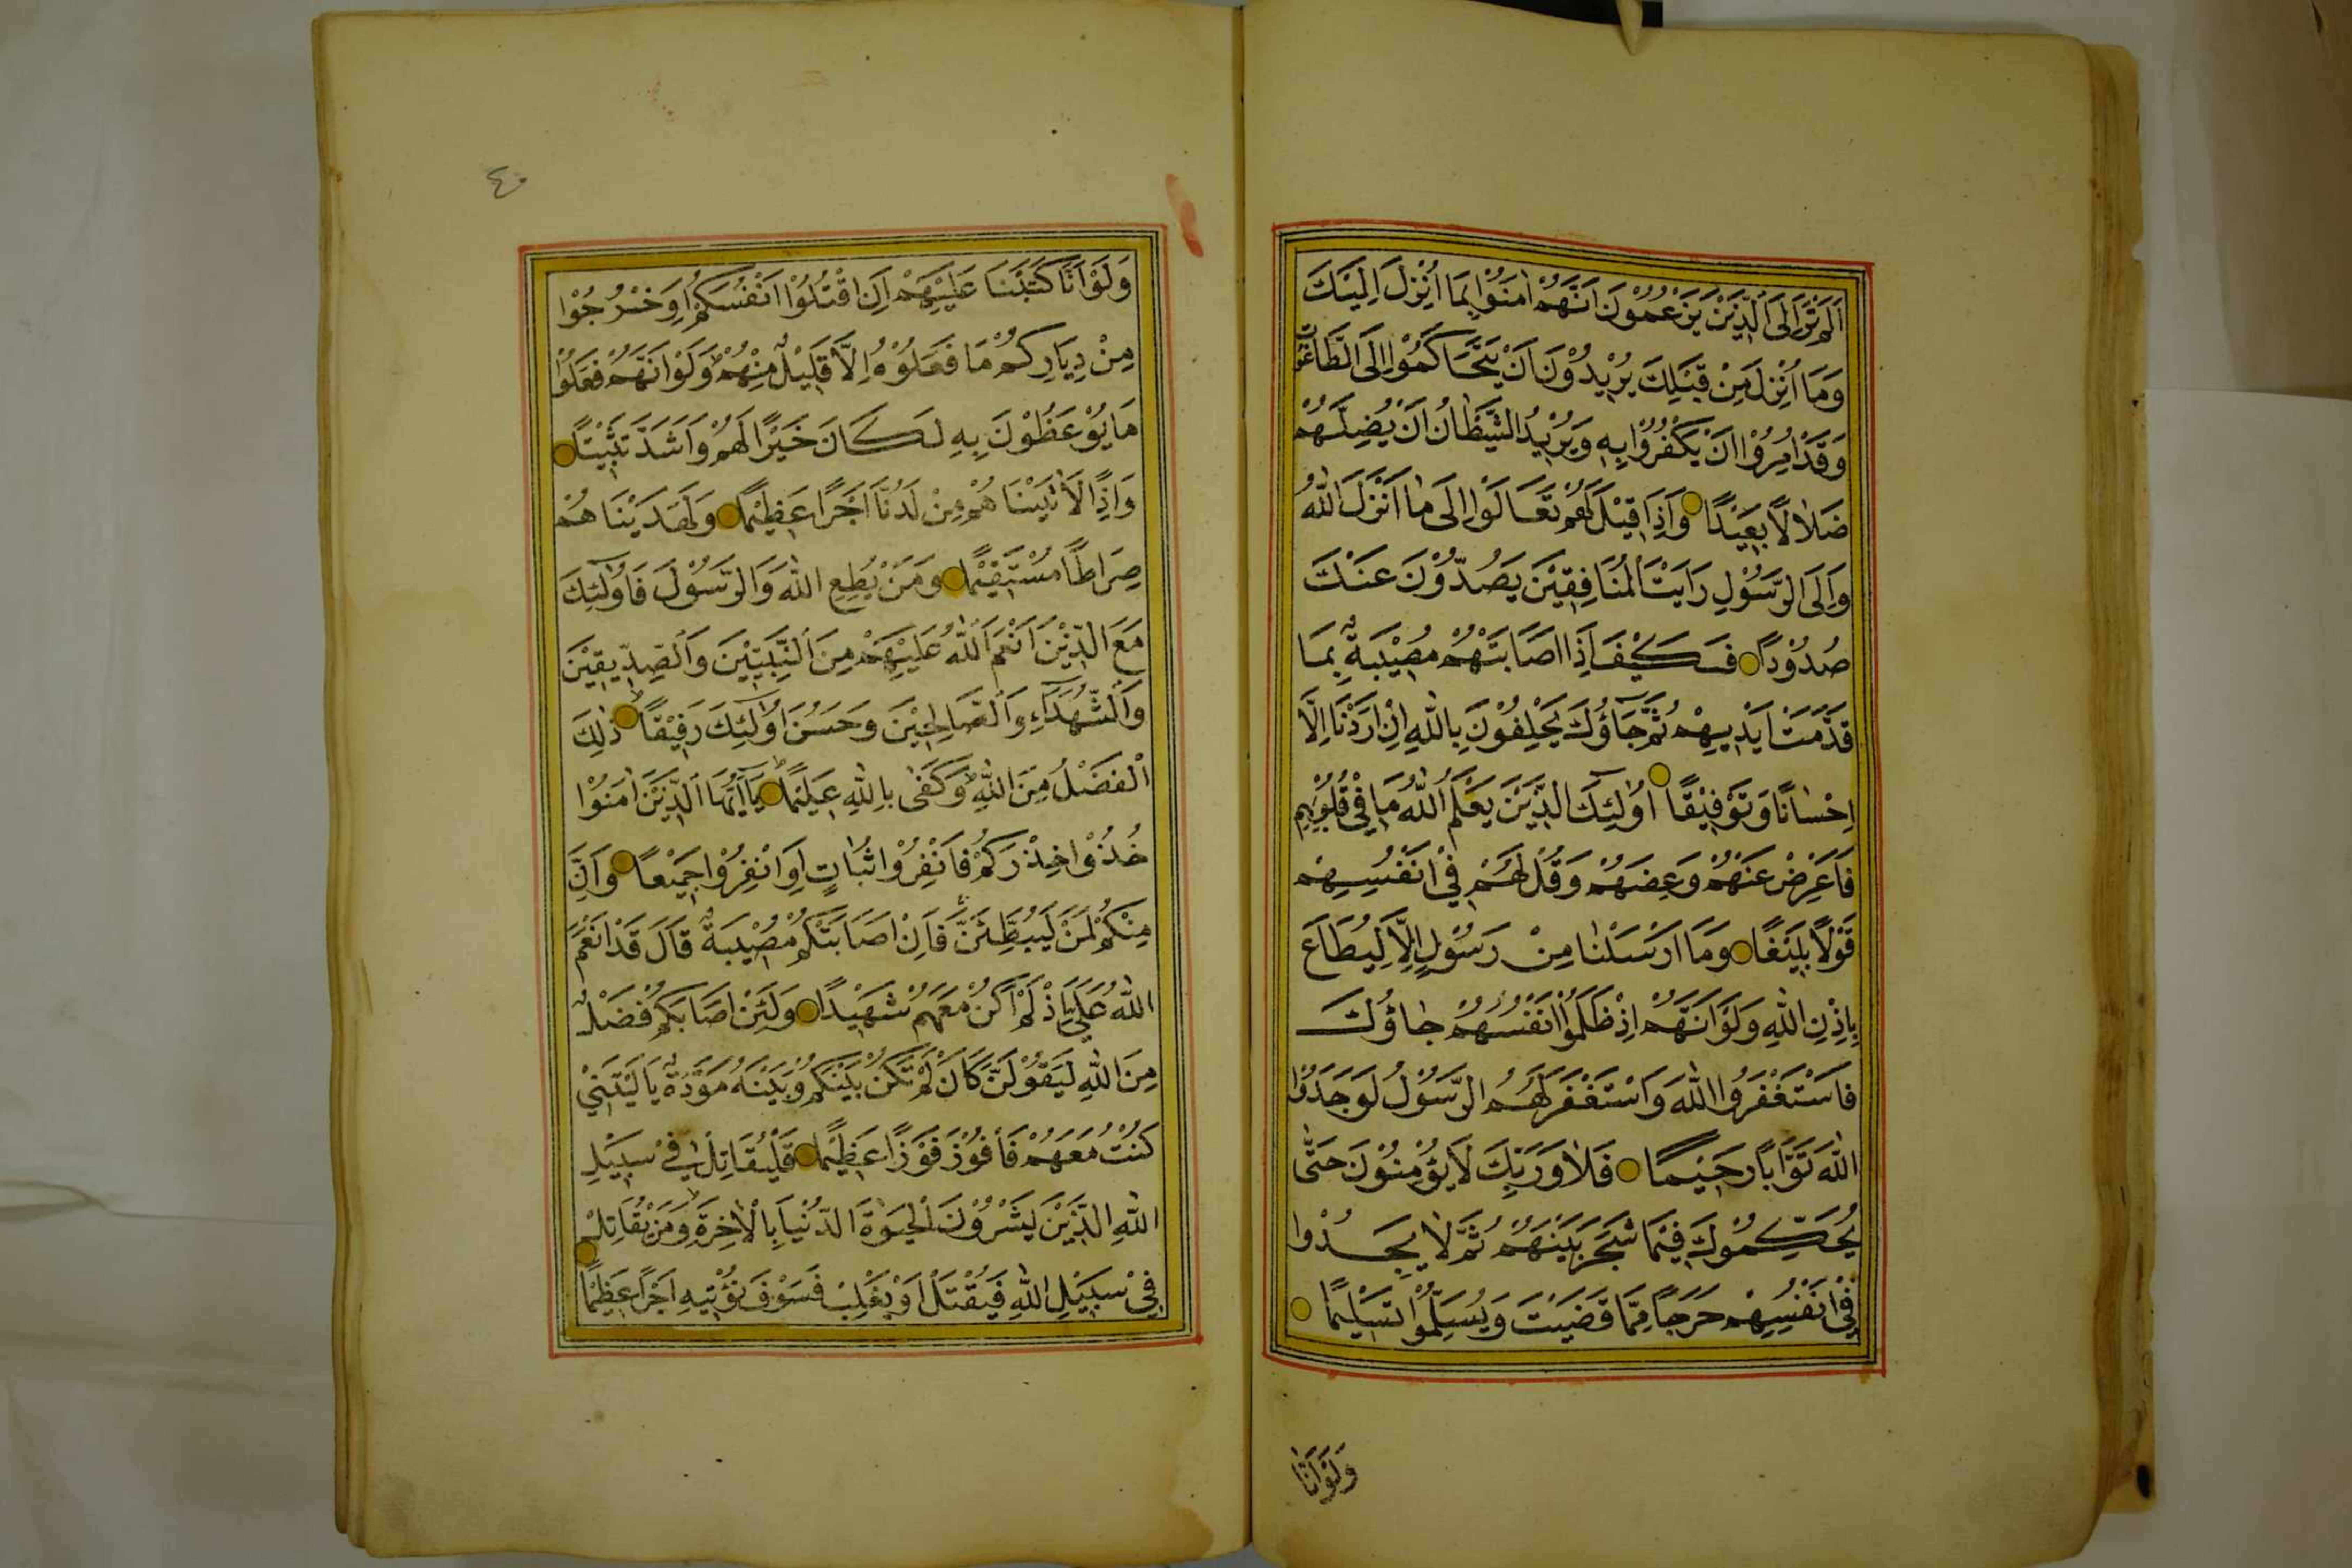 اَلَمْ تَرَ اِلَى الَّذِيْنَ يَزْعُمُوْنَ اَنَّهُمْ اٰمَنُوْا بِمَا اُنْزِلَ اِلَيْكَ
وَمَا اُنْزِلَ مِنْ قَبْلِكَ يُرِيْدُوْنَ اَنْ يَتَحَاكَمُوْا اِلَى الطَّاغُوتِ
وَقَدْ اُمِرُوْا اَنْ يَكْفُرُوْا بِهِ وَيُرِيْدُ الشَّيْطَانُ اَنْ يُضِلَّهُمْ
ضَلَالًا بَعِيْدًا وَاِذَا قِيْلَ لَهُمْ تَعَالَوْا اِلَى مَا اَنْزَلَ اللّٰهُ
وَاِلَى الرَّسُوْلِ رَاَيْتَ الْمُنَافِقِيْنَ يَصُدُّوْنَ عَنْكَ
صُدُوْدًا فَكَيْفَ اِذَا اصَابَتْهُمْ مُصِيْبَةٌ بِمَا
قَدَّمَتْ اَيْدِيهِمْ ثُمَّ جَآؤُكَ يَحْلِفُوْنَ بِاللّٰهِ اِنْ اَرَدْنَا اِلَّا
اِحْسَانًا وَتَوْفِيْقًا اُولٰٓئِكَ الَّذِيْنَ يَعْلَمُ اللّٰهُ مَا فِيْ قُلُوْبِهِمْ
فَاَعْرِضْ عَنْهُمْ وَعِظْهُمْ وَقُلْ لَهُمْ فِيْ اَنْفُسِهِمْ
قَوْلًا بَلِيْغًا وَمَا اَرْسَلْنَا مِنْ رَسُوْلٍ اِلَّا لِيُطَاعَ
بِاِذْنِ اللّٰهِ وَلَوْ اَنَّهُمْ اِذْ ظَلَمُوْا اَنْفُسَهُمْ جَاؤُكَ
فَاسْتَغْفَرُوا اللّٰهَ وَاسْتَغْفَرَ لَهُمُ الرَّسُوْلُ لَوَجَدُوْا
اللّٰهَ تَوَّابًا رَحِيْمًا فَلَا وَرَبِّكَ لَا يُؤْمِنُوْنَ حَتّٰى
يُحَكِّمُوْكَ فِيْمَا شَجَرَ بَيْنَهُمْ ثُمَّ لَا يَجِدُوْا
فِيْ اَنْفُسِهِمْ حَرَجًا مِمَّا قَضَيْتَ وَيُسَلِّمُوْا تَسْلِيْمًا
وَلَوْ اَنَّا
٤٠
وَلَوْ اَنَّا كَتَبْنَا عَلَيْهِمْ اَنِ اقْتُلُوْا اَنْفُسَكُمْ اَوِ خْرُجُوْا
مِنْ دِيَارِكُمْ مَا فَعَلُوْهُ اِلَّا قَلِيْلٌ مِنْهُمْ وَلَوْ اَنَّهُمْ فَعَلُوْا
مَا يُوْعَظُوْنَ بِهِ لَكَانَ خَيْرًا لَهُمْ وَاَشَدَّ تَثْبِيْتًا
وَاِذًا لَاٰتَيْنَاهُمْ مِنْ لَدُنَّا اَجْرًا عَظِيْمًا وَلَهَدَيْنَاهُمْ
صِرَاطًا مُسْتَقِيْمًا وَمَنْ يُطِعِ اللّٰهَ وَالرَّسُوْلَ فَاُولٰٓئِكَ
مَعَ الَّذِيْنَ اَنْعَمَ اللّٰهُ عَلَيْهِمْ مِنَ النَّبِيّٖنَ وَالصِّدِّيقِيْنَ
وَالشُّهَدَآءِ وَالصَّالِحِيْنَ وَحَسُنَ اُولٰٓئِكَ رَفِيْقًا ذٰلِكَ
الْفَضْلُ مِنَ اللّٰهِ وَكَفٰى بِاللّٰهِ عَلِيْمًا يَآ اَيُّهَا الَّذِيْنَ اٰمَنُوْا
خُذُوْا حِذْرَكُمْ فَانْفِرُوْا ثُبَاتٍ اَوِ انْفِرُوْا جَمِيْعًا وَاِنَّ
مِنْكُمْ لَمَنْ لَيُبَطِّئَنَّ فَاِنْ اَصَابَتْكُمْ مُصِيْبَةٌ قَالَ قَدْ اَنْعَمَ
اللّٰهُ عَلَيَّ اِذْ لَمْ اَكُنْ مَعَهُمْ شَهِيْدًا وَلَئِنْ اَصَابَكُمْ فَضْلٌ
مِنَ اللّٰهِ لَيَقُوْلَنَّ كَاَنْ لَمْ تَكُنْ بَيْنَكُمْ وَبَيْنَهُ مَوَدَّةٌ يَا لَيْتَنِيْ
كُنْتُ مَعَهُمْ فَاَفُوْزَ فَوْزًا عَظِيْمًا فَلْيُقَاتِلْ فِيْ سَبِيْلِ
اللّٰهِ الَّذِيْنَ يَشْرُوْنَ الْحَيٰوةَ الدُّنْيَا بِالْاٰخِرَةِ وَمَنْ يُقَاتِلْ
فِيْ سَبِيْلِ اللّٰهِ فَيُقْتَلْ اَوْ يَغْلِبْ فَسَوْفَ نُؤْتِيهِ اَجْرًا عَظِيْمًا